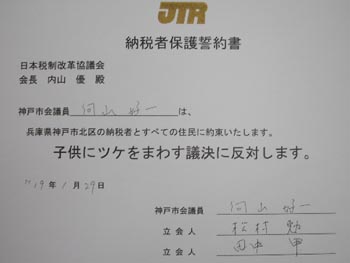 JTR
納税者保護誓約書
日本税制改革協議会
会長 内山 優 殿
神戸市会議員 向山好一 は、
兵庫県神戸市北区の納税者とすべての住民に約束いたします。
子供にツケをまわす議決に反対します。
'19年 1月 29日
神戸市会議員 向山好一
立会人 松村 勉
立会人 田中 甲